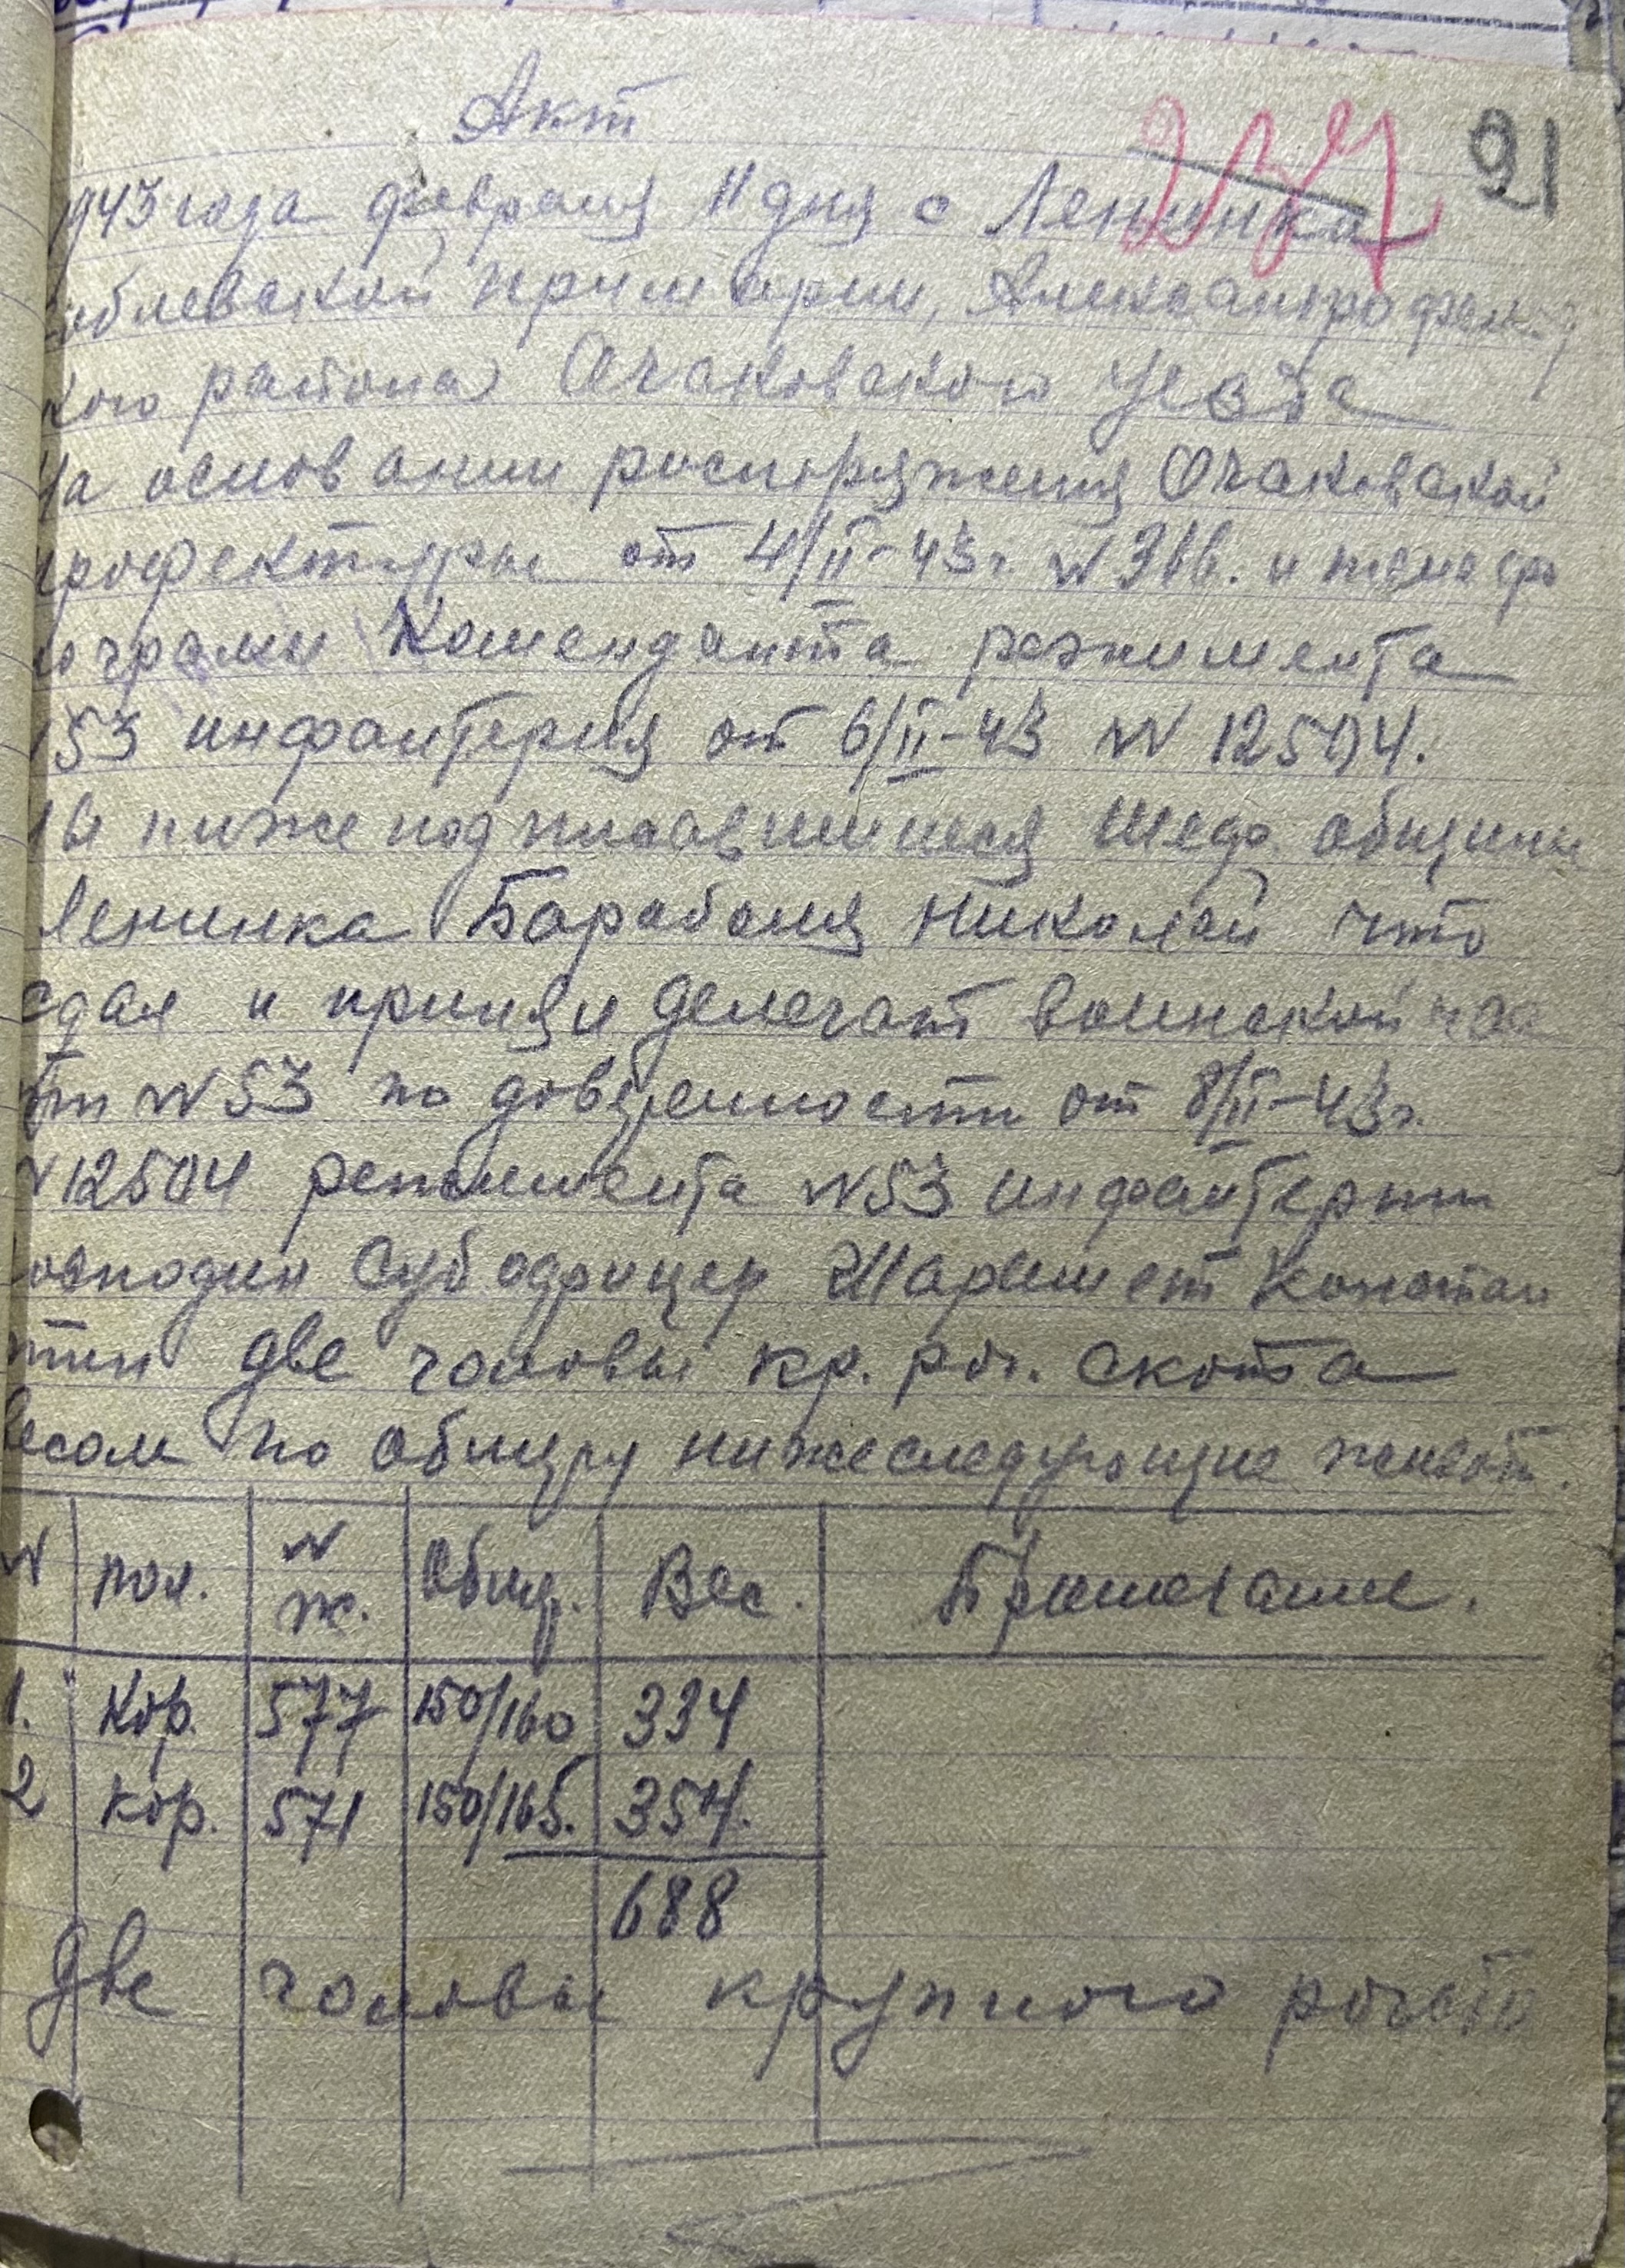 Акт
237 21
1943 года февраля 11 дня с Ленинка
облевской примарии, Александрофельд
кого района Очаковского уезда
На основании роспоряжения Очаковской
профектуры от 4/II-43г. N 311в. и телефо
нограмы Коменданта режимента
N53 инфантерия от 6/II-43 N 12504.
Мы ниже подписавшиеся Шеф. общины
Ленинка Барабаня Николай что
сдал и принял делегат воинской час
ти N53 по доверенности от 8/II-43г.
N12504 режимента N53 инфантерии
господин Субофицер Константи
тин две головы кр. рог. скота
весом по обмеру нижеследующие живот.
N пол. N ж. Обмер. Вес. Примечание.
1. Кор. 577 150/160 334
2 Кор. 571 150/165. 354.
688
Две головы крупного рогато